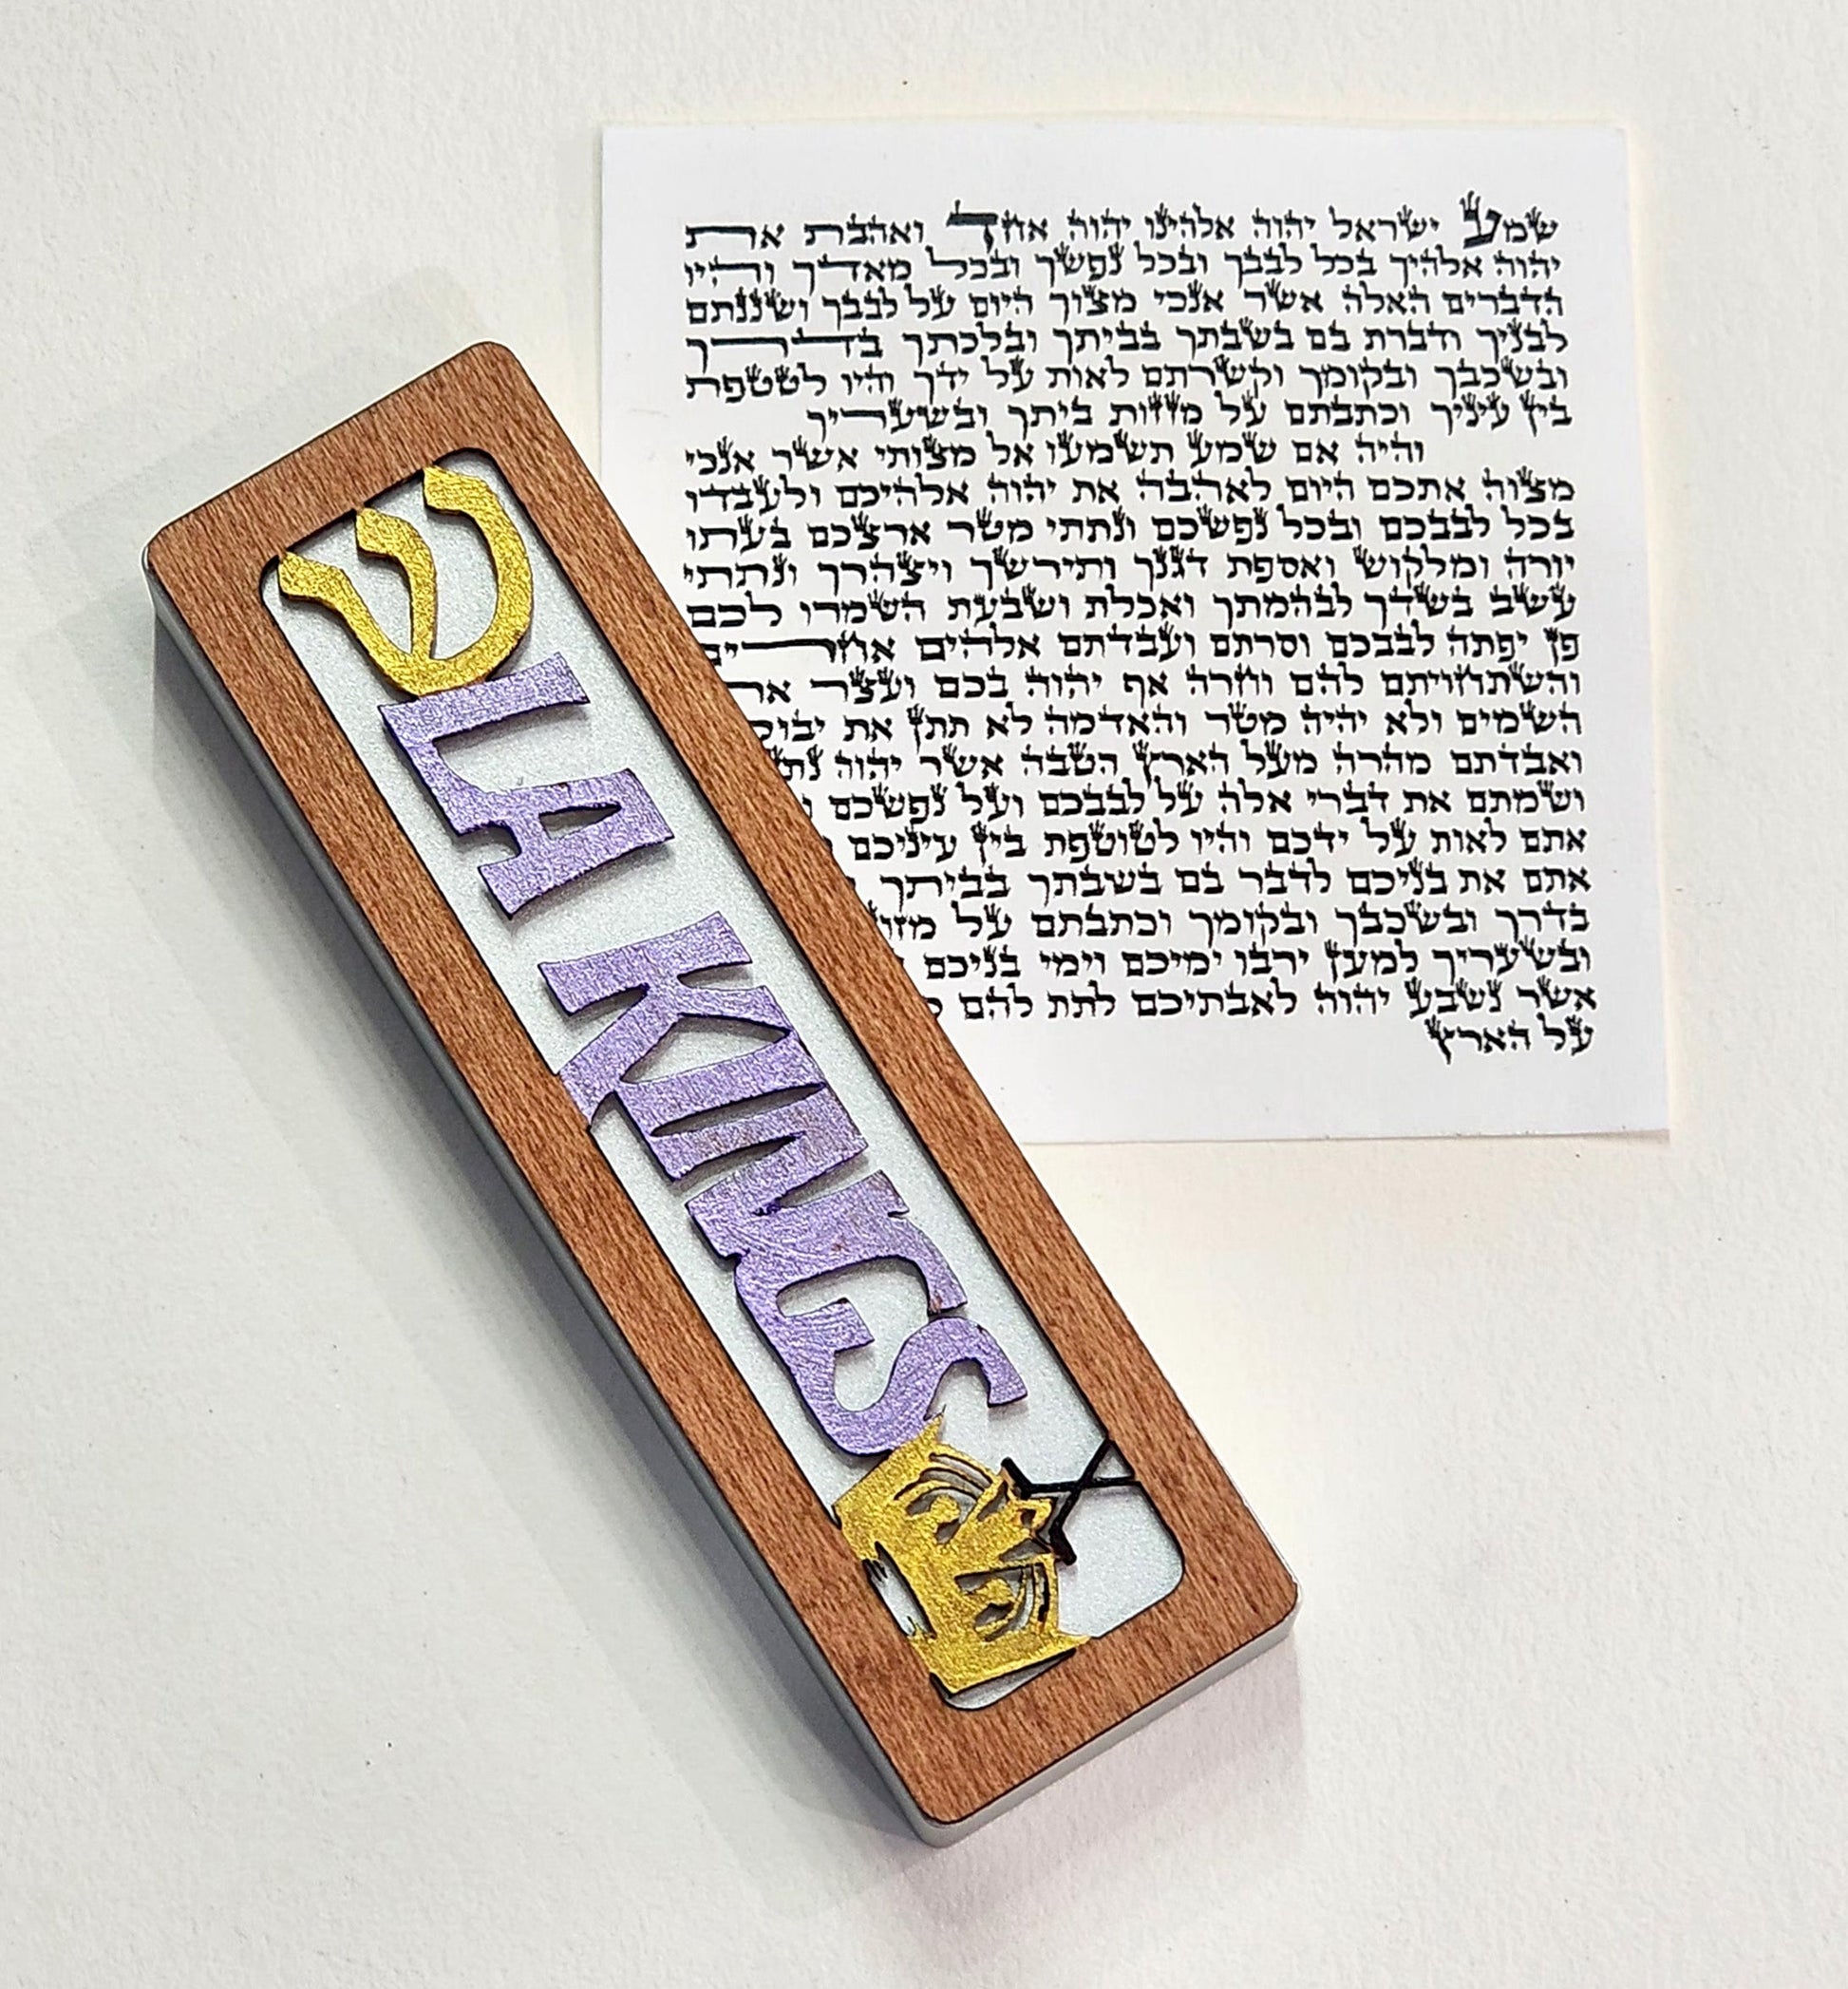 ש
LA KINGS
שמע ישראל יהוה אלהינו יהוה אחד ואהבת את
יהוה אלהיך בכל לבבך ובכל נפשך ובכל מאדך והיו
הדברים האלה אשר אנכי מצוך היום על לבבך ושננתם
לבניך ודברת בם בשבתך בביתך ובלכתך בדרך
ובשכבך ובקומך וקשרתם לאות על ידך והיו לטטפת
בין עיניך וכתבתם על מזזות ביתך ובשעריך
והיה אם שמע תשמעו אל מצותי אשר אנכי
מצוה אתכם היום לאהבה את יהוה אלהיכם ולעבדו
בכל לבבכם ובכל נפשכם ונתתי מטר ארצכם בעתו
יורה ומלקוש ואספת דגנך ותירשך ויצהרך ונתתי
עשב בשדך לבהמתך ואכלת ושבעת השמרו לכם
פן יפתה לבבכם וסרתם ועבדתם אלהים אחרים
והשתחויתם להם וחרה אף יהוה בכם ועצר את
השמים ולא יהיה מטר והאדמה לא תתן את
ואבדתם מהרה מעל הארץ הטבה אשר יהוה
ושמתם את דברי אלה על לבבכם ועל נפשכם
אתם לאות על ידכם והיו לטוטפת בין עיניכם
אתם את בניכם לדבר בם בשבתך בביתך
בדרך ובשכבך ובקומך וכתבתם על
ובשעריך למען ירבו ימיכם וימי בניכם
אשר נשבע יהוה לאבתיכם לתת להם
על הארץ